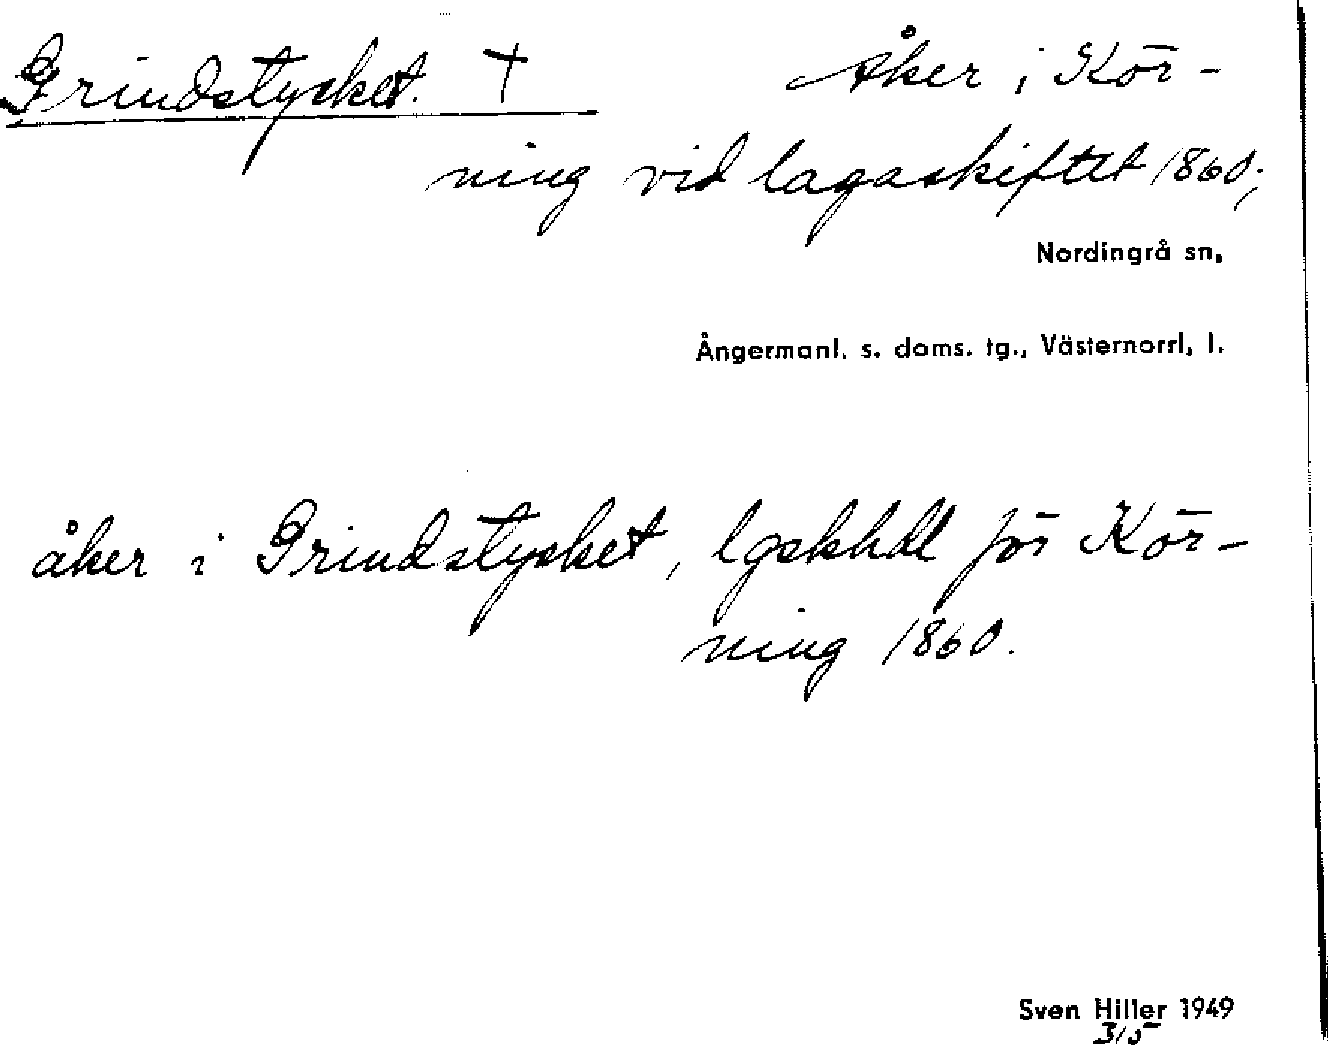 Grindstycket. † Åker i Kör-
ning vid lagaskiftet 1860;
Nordingrå sn,
Ångermanl. s. doms. tg., Västernorrl, l.
åker i Grindstycket, lgskhdl för Kör-
ning 1860.
Sven Hiller 1949
3/5